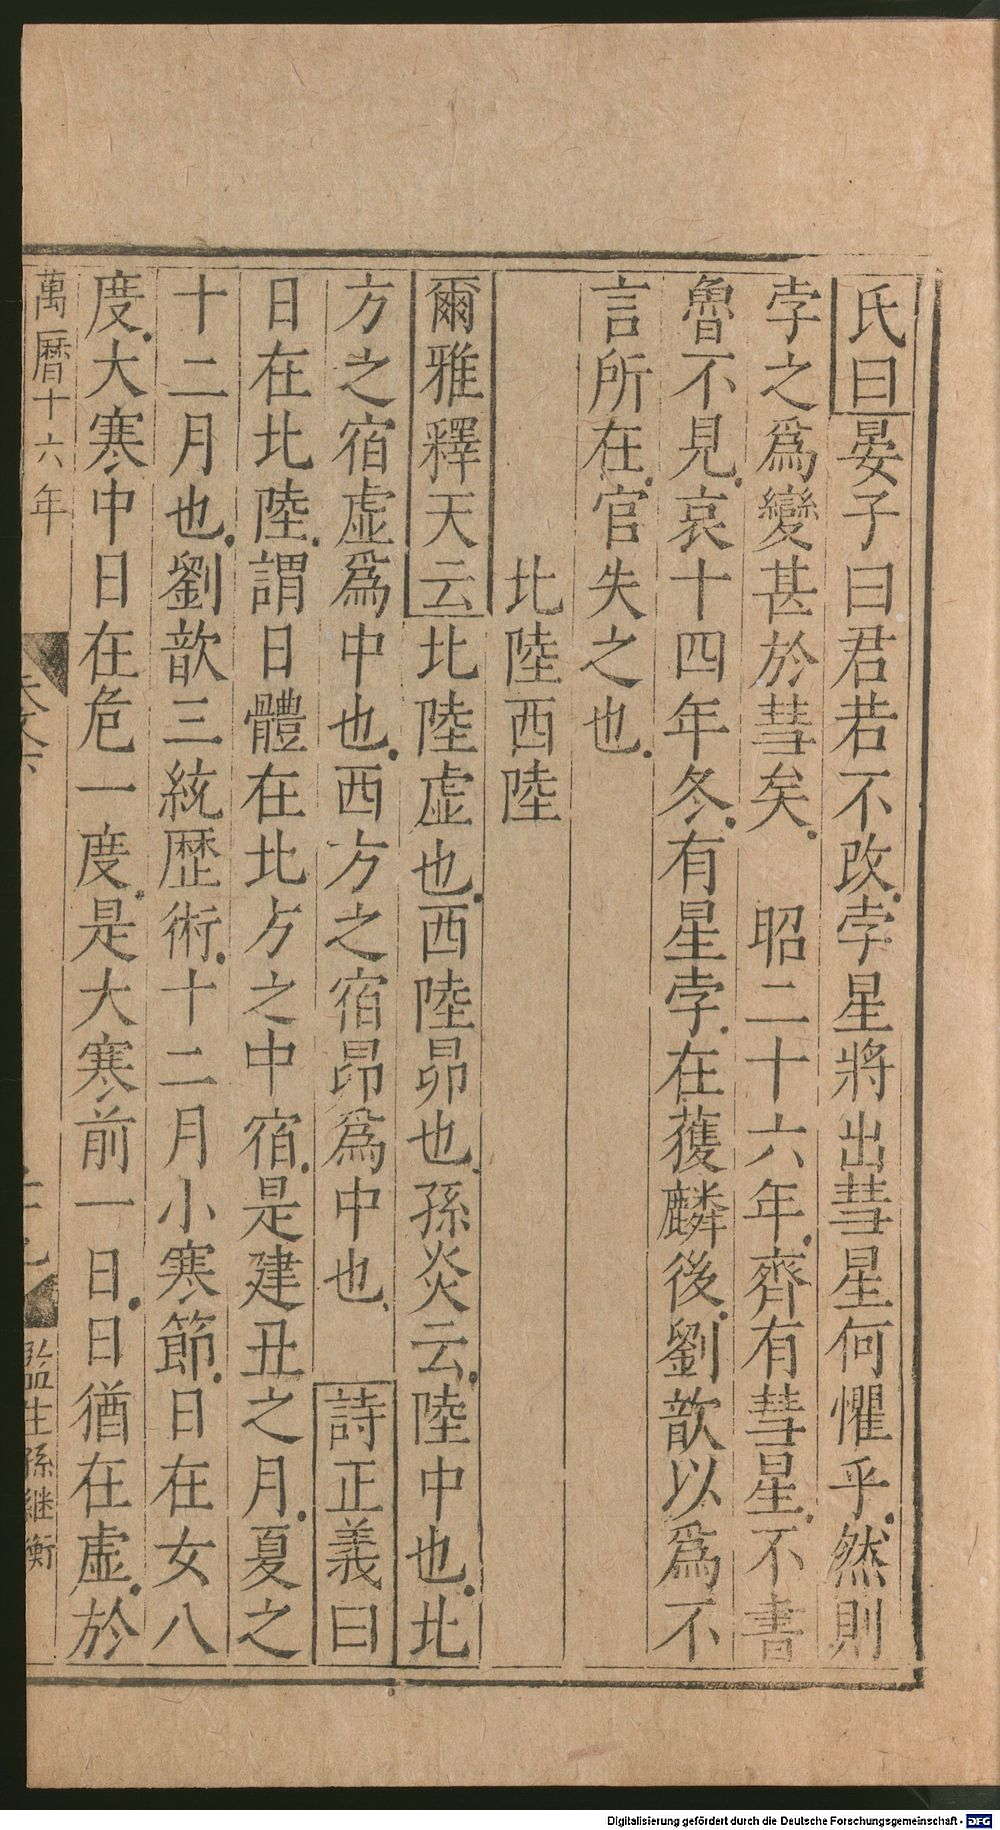 氏曰晏子曰君若不改孛星將出彗星何懼乎然則
孛之爲變甚於彗矣　昭二十六年齊有彗星不書
魯不見哀十四年冬有星孛在蒦麟後劉歆以爲不
言所在官失之也
北陸西陸
爾雅釋天云北陸虛也西陸昴也孫炎云陸中也北
方之宿虛爲中也西方之宿昴爲中也　詩正義曰
日在北陸謂日體在北方之中宿是建丑之月夏之
十二月也劉歆三統歷術十二月小寒節日在女八
度大寒中日在危一度是大寒前一日日猶在虛於
萬曆十六年
監生孫继衡
Digitalisierung gefördert durch die Deutsche Forschungsgemeinschaft - DFG